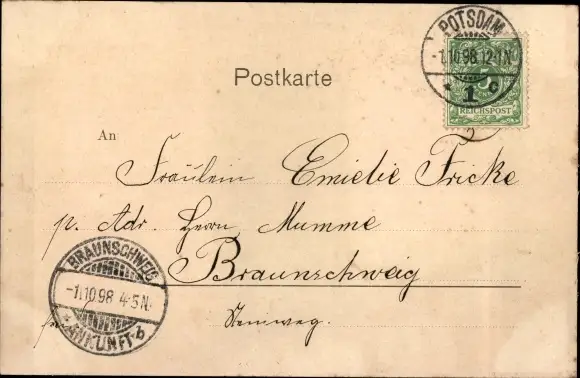 POTSDAM
-1.10.98 12-1N.
* 1 c
REICHSPOST
Postkarte
An
Fräulein Emielie Fricke
p. Adr. Herrn Mumme
Braunschweig
Steinweg.
BRAUNSCHWEIG
-1.10.98 4-5N.
* ANKUNFT. b